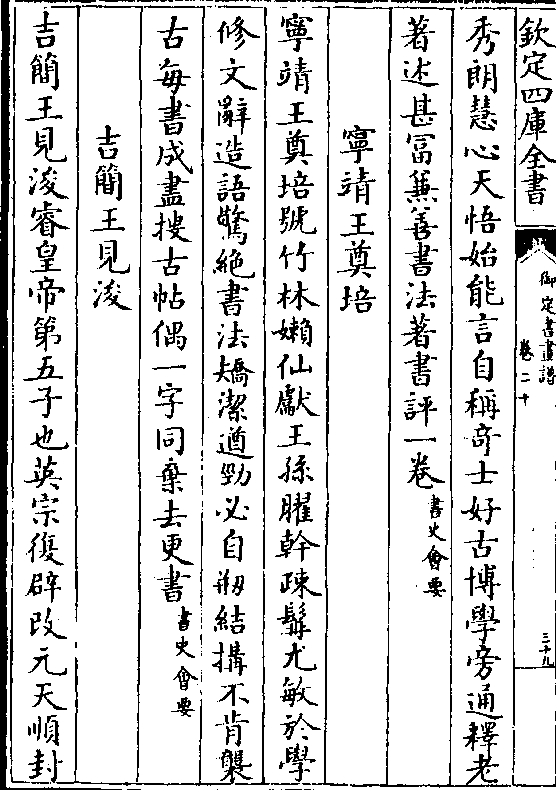 欽定四庫全書
御定書畫譜
卷二十
三十九
秀朗慧心天悟始能言自稱奇士好古博學旁通釋老
著述甚富兼善書法著書評一卷書史會要
寧靖王奠培
寧靖王奠培號竹林嬾仙獻王孫臞幹疎髯尤敏於學
修文辭造語驚絶書法矯潔遒勁必自刱結搆不肯襲
古每書成盡搜古帖偶一字同棄去更書書史會要
吉簡王見浚
吉簡王見浚睿皇帝第五子也英宗復辟改元天順封